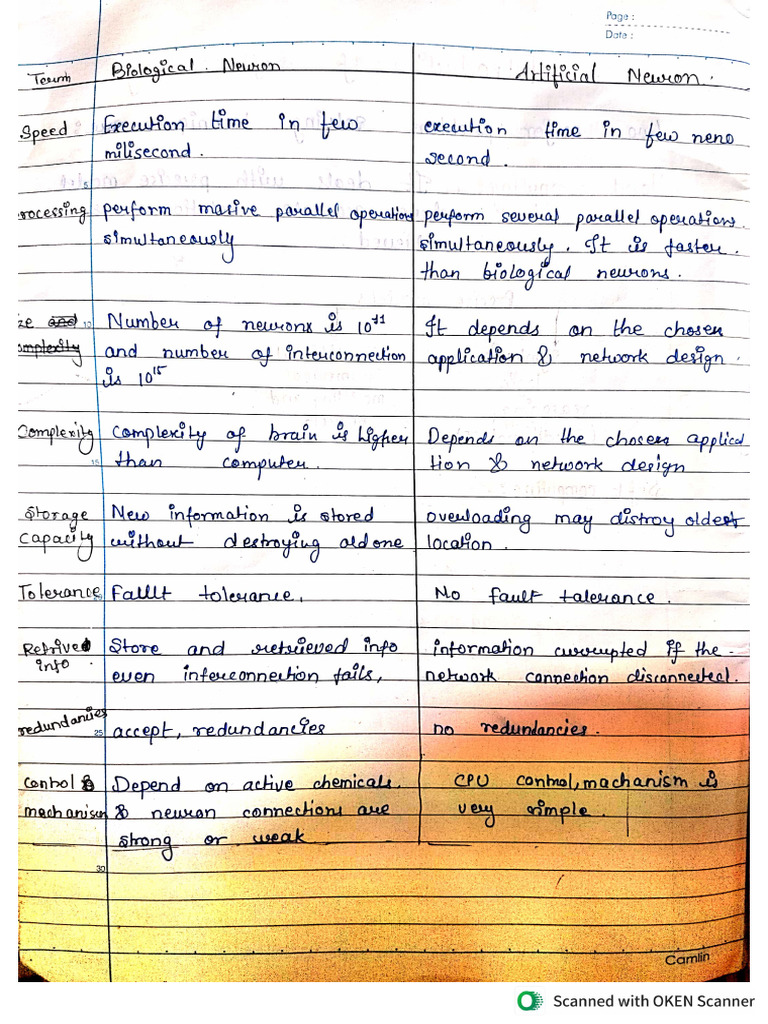 Page :
Date :
Term Biological Neuron Artificial Neuron.
Speed Execution time in few execution time in few neno
milisecond. second.
5
rocessing perform masive parallel operations perform several parallel operations.
simultaneously simultaneously. It is faster.
than biological neurons.
ze and 10 Number of neurons is 10¹¹ It depends on the chosen
omplexity and number of interconnection application & network design.
is 10¹⁵
Complexity complexity of brain is higher Depends on the chosen applica
15 than computer. tion & network design
Storage New information is stored overloading may distroy oldest
capacity without destroying old one location.
Tolerance Fallt tolerance. No fault talerance.
Retrived Store and retrieved info information currupted if the
info. even interconnection fails, network connection disconnected.
redundancies
25 accept, redundancies no redundancies.
control & Depend on active chemicals. CPU control, machanism is
machanism & neuron connections are very simple.
strong or weak
30
Camlin
Scanned with OKEN Scanner